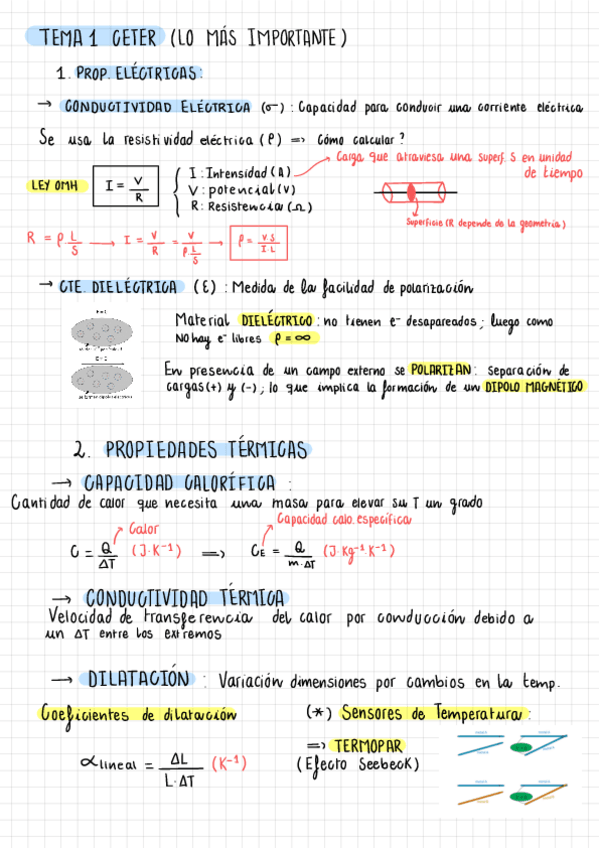 TEMA 1 CETER (LO MÁS IMPORTANTE)
1. PROP. ELÉCTRICAS:
→ CONDUCTIVIDAD ELÉCTRICA (σ) : Capacidad para conducir una corriente eléctrica
Se usa la resistividad eléctrica (ρ) => Cómo calcular?
Carga que atraviesa una superf. S en unidad
de tiempo
LEY OMH
I = V/R
I : Intensidad (A)
V : potencial (V)
R : Resistencia (Ω)
Superficie (R depende de la geometría)
R = ρ L/S → I = V/R = V/(ρ L/S) → ρ = V·S/I·L
→ CTE. DIELÉCTRICA (ε) : Medida de la facilidad de polarización
Material DIELÉCTRICO : no tienen e⁻ desapareados ; luego como
NO hay e⁻ libres ρ = ∞
En presencia de un campo externo se POLARIZAN : separación de
cargas (+) y (-) ; lo que implica la formación de un DIPOLO MAGNÉTICO
2. PROPIEDADES TÉRMICAS
→ CAPACIDAD CALORÍFICA :
Cantidad de calor que necesita una masa para elevar su T un grado
Calor
Capacidad calo. específica
C = Q/ΔT (J·K⁻¹) => CE = Q/m·ΔT (J·Kg⁻¹·K⁻¹)
→ CONDUCTIVIDAD TÉRMICA
Velocidad de transferencia del calor por conducción debido a
un ΔT entre los extremos
→ DILATACIÓN : Variación dimensiones por cambios en la temp.
Coeficientes de dilatación
(*) Sensores de Temperatura :
=> TERMOPAR
(Efecto Seebeck)
α lineal = ΔL/L·ΔT (K⁻¹)